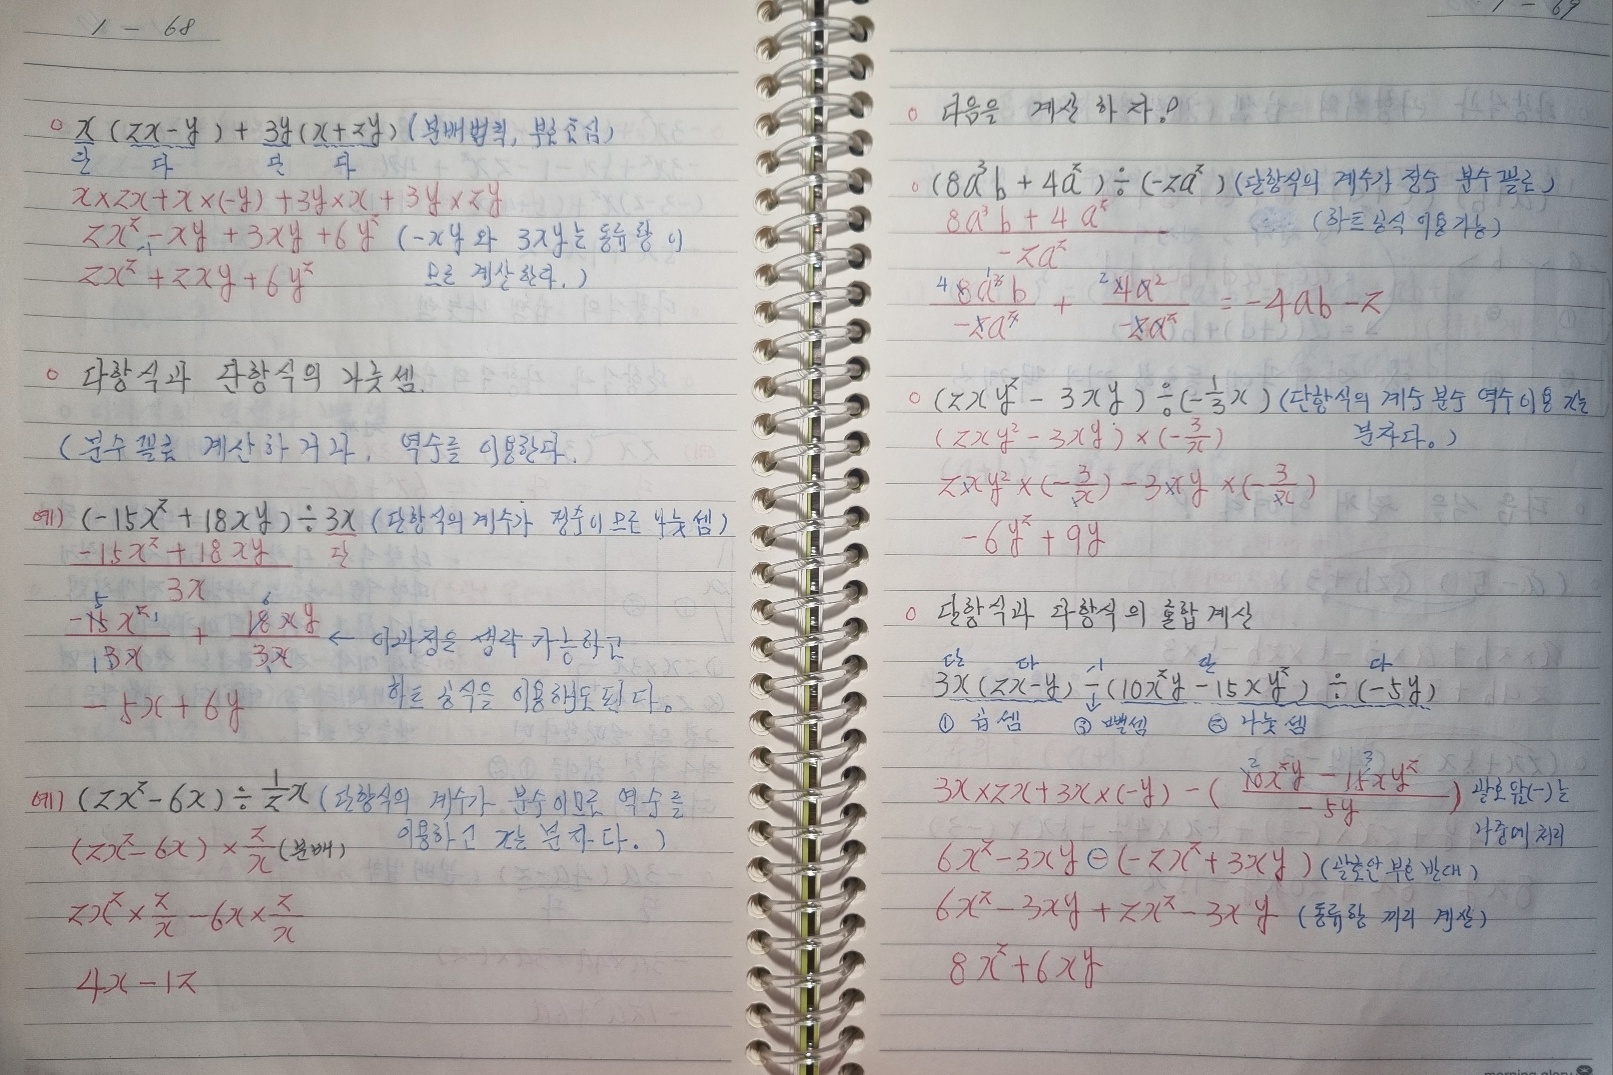 1 - 68
○ x(2x-y) + 3y(x+2y) (분배법칙, 부호조심)
단 다 단 다
x×2x+x×(-y)+3y×x+3y×2y
2x²-xy+3xy+6y² (-xy와 3xy는 동류항이
-1
2x²+2xy+6y² 므로 계산한다.)
○ 다항식과 단항식의 나눗셈.
(분수꼴로 계산하거나, 역수를 이용한다.
예) (-15x²+18xy)÷3x (단항식의 계수가 정수이므로 나눗셈)
-15x²+18xy 단
3x
5 1 6
-15x² + 18xy ← 이과정을 생략 가능하고
1 3x 3x 하트 공식을 이용해도 된다。
-5x+6y
예) (2x²-6x)÷1/2x (단항식의 계수가 분수이므로 역수를
(2x²-6x)×2/x (분배) 이용하고 x는 분자다。)
2x²×2/x-6x×2/x
4x-12
1 - 69
○ 다음을 계산하자?
○ (8a³b+4a²)÷(-2a²) (단항식의 계수가 정수 분수꼴로)
8a³b+4a² (하트공식 이용가능)
-2a²
4 1 2
8a³b + 4a² = -4ab-2
-2a² -2a²
○ (2xy²-3xy)÷(-1/3x) (단항식의 계수 분수 역수이용 x는
(2xy²-3xy)×(-3/x) 분자다。)
2xy²×(-3/x)-3xy×(-3/x)
-6y²+9y
○ 단항식과 다항식의 혼합계산
단 다 -1 단 다
3x(2x-y)-(10x²y-15xy²)÷(-5y)
① 곱셈 ③ 뺄셈 ② 나눗셈
2 3
3x×2x+3x×(-y)-(10x²y-15xy²/-5y) 괄호앞(-)는
나중에 처리
6x²-3xy⊖(-2x²+3xy) (괄호안 부호 반대)
6x²-3xy+2x²-3xy (동류항 끼리 계산)
8x²+6xy
morning glory